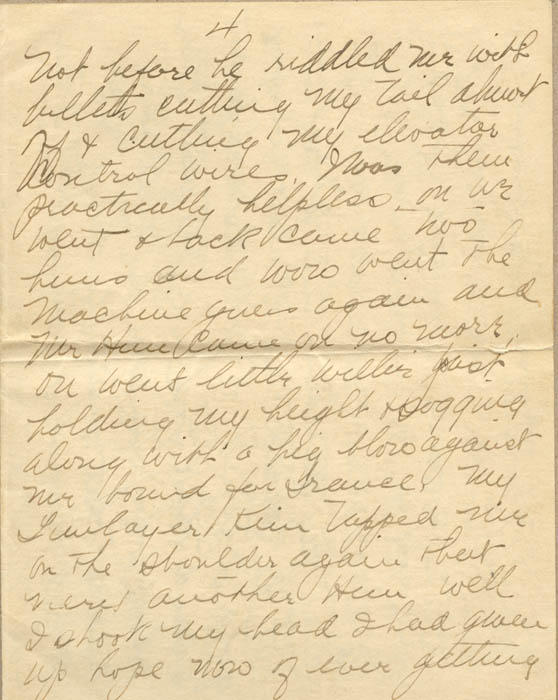 4
Not before he riddled me with
bullets cutting my tail almost
off & cutting my elevator
control wires. I was then
practically helpless on we
went & back came two
huns and wow went the
machine guns again and
Mr Hun came on no more.
on went little willie just
holding my height & jogging
along with a big blow against
me bound for France. My
Gunlayer Kim tapped me
on the shoulder again that
heres another Hun well
I shook my head I had given
up hope now of ever getting